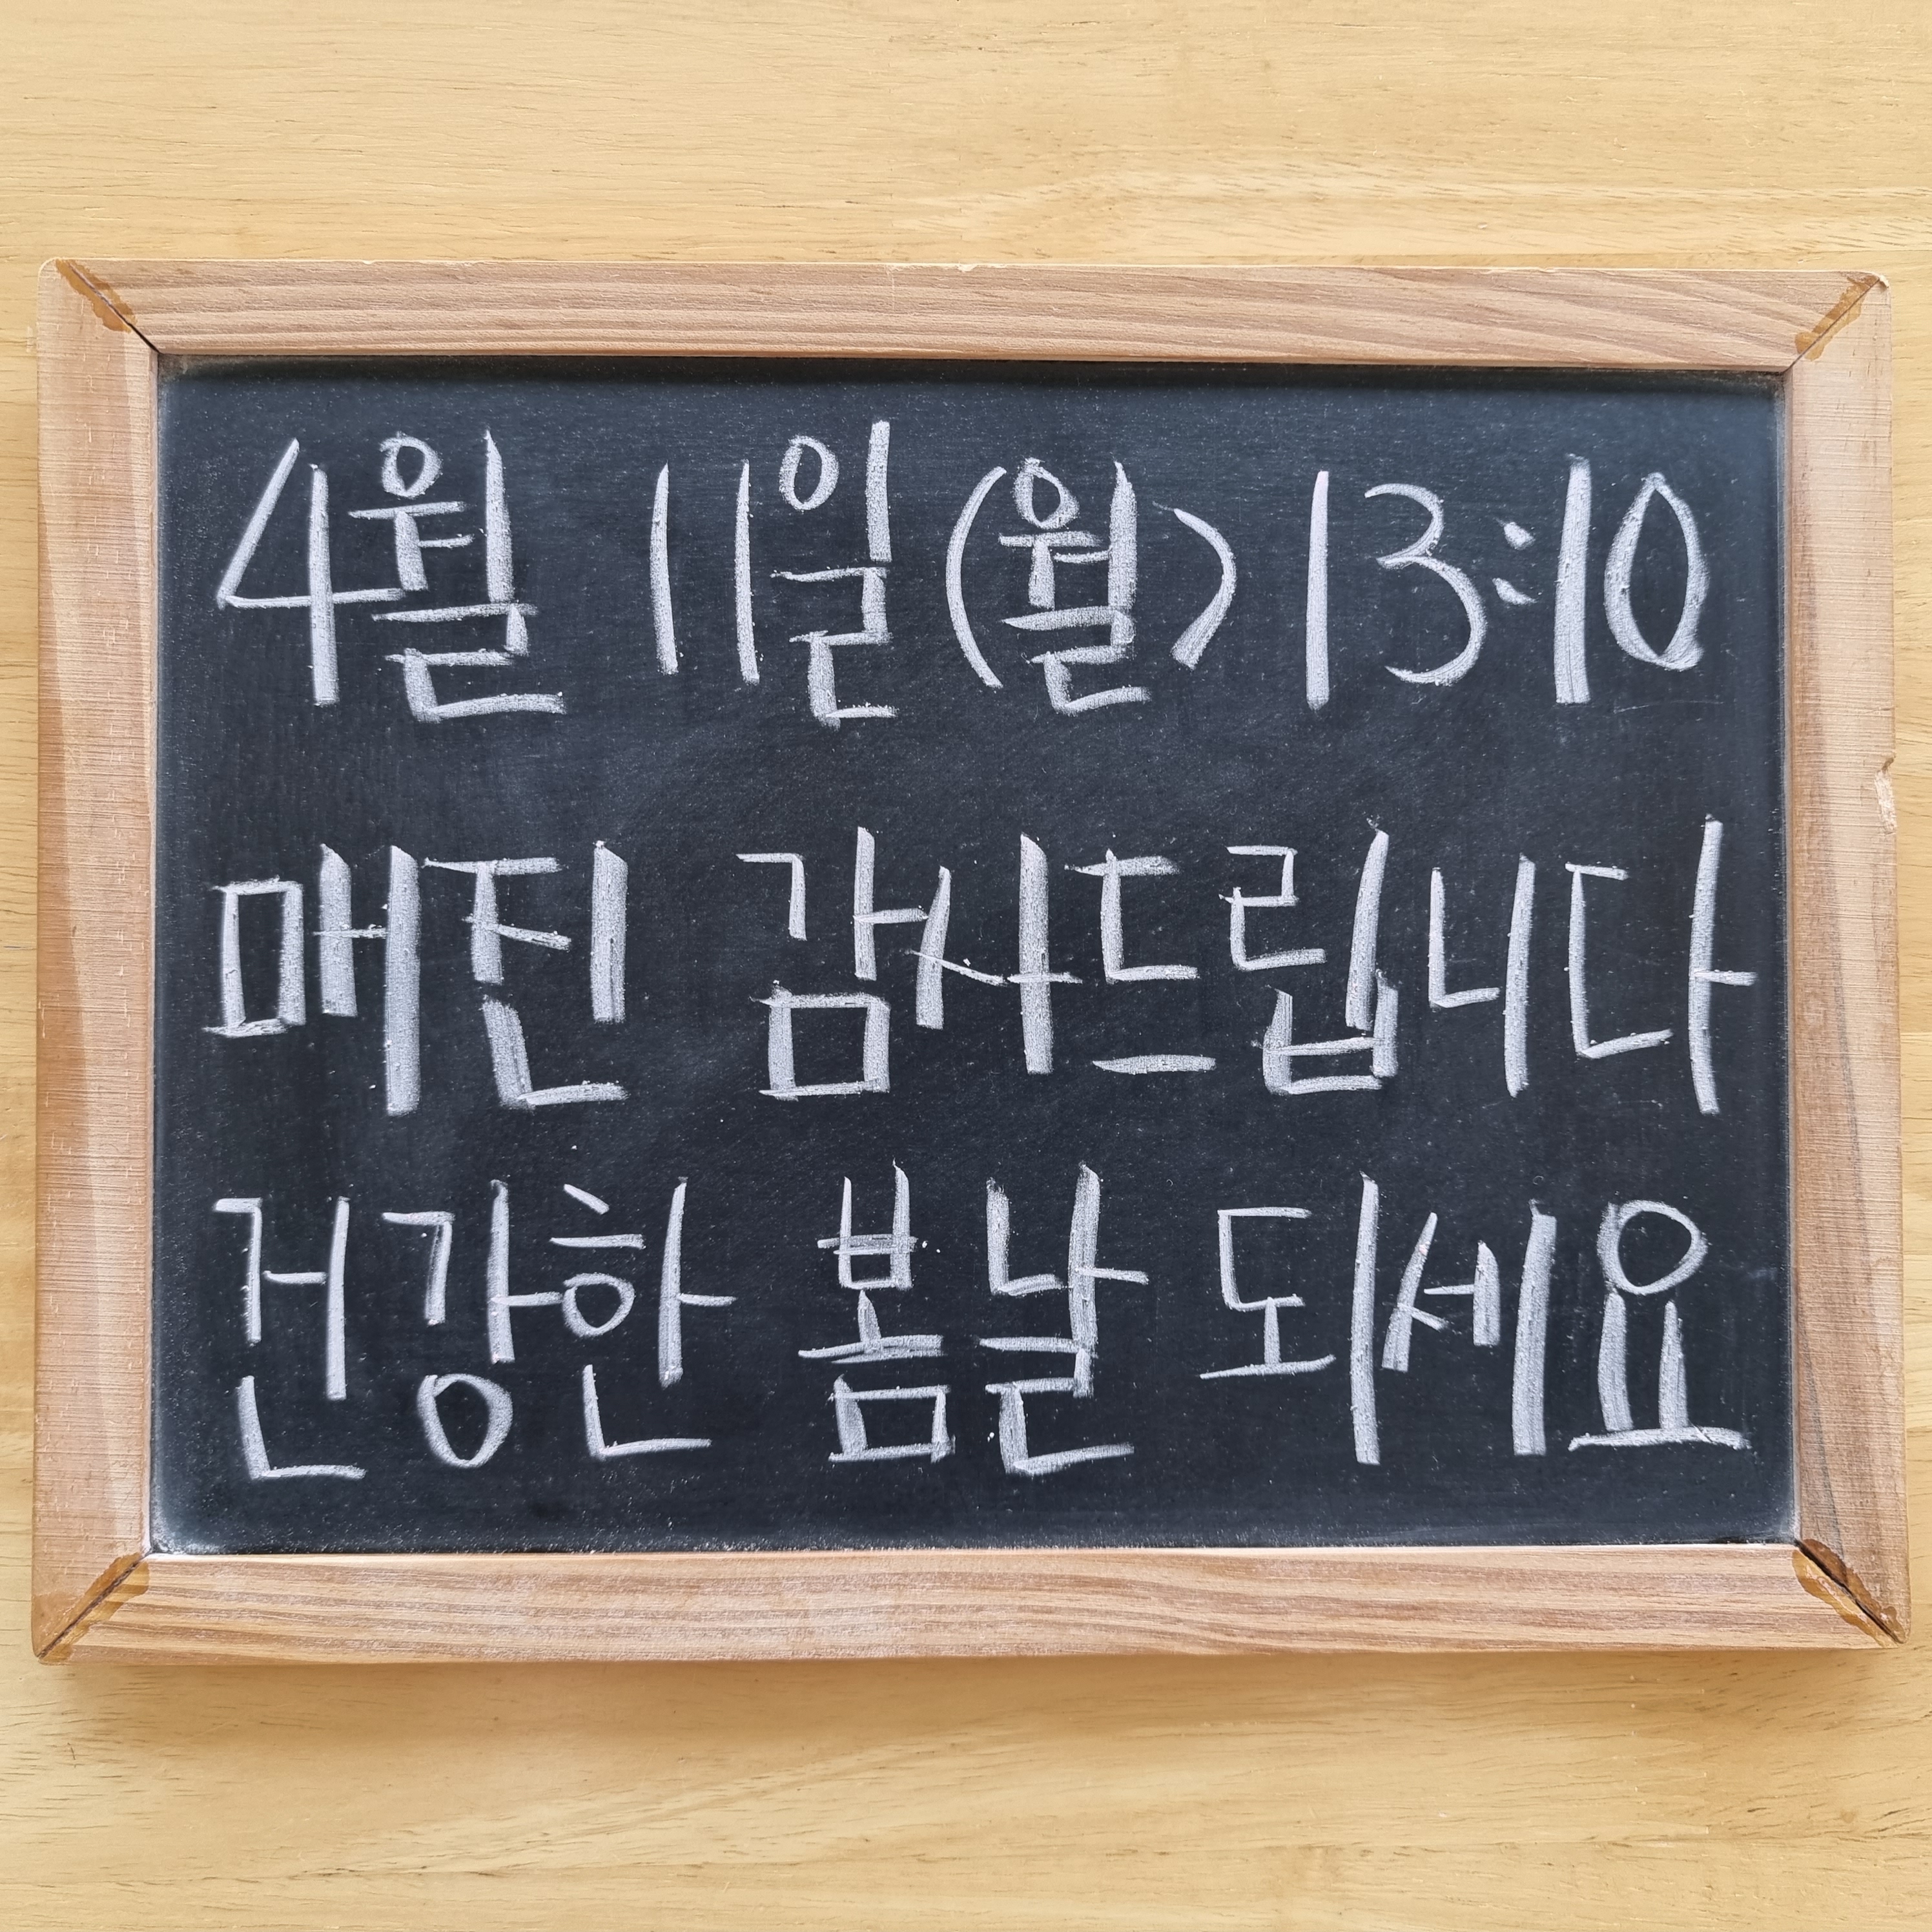 4월 11일(월) 13:10
매진 감사드립니다
건강한 봄날 되세요